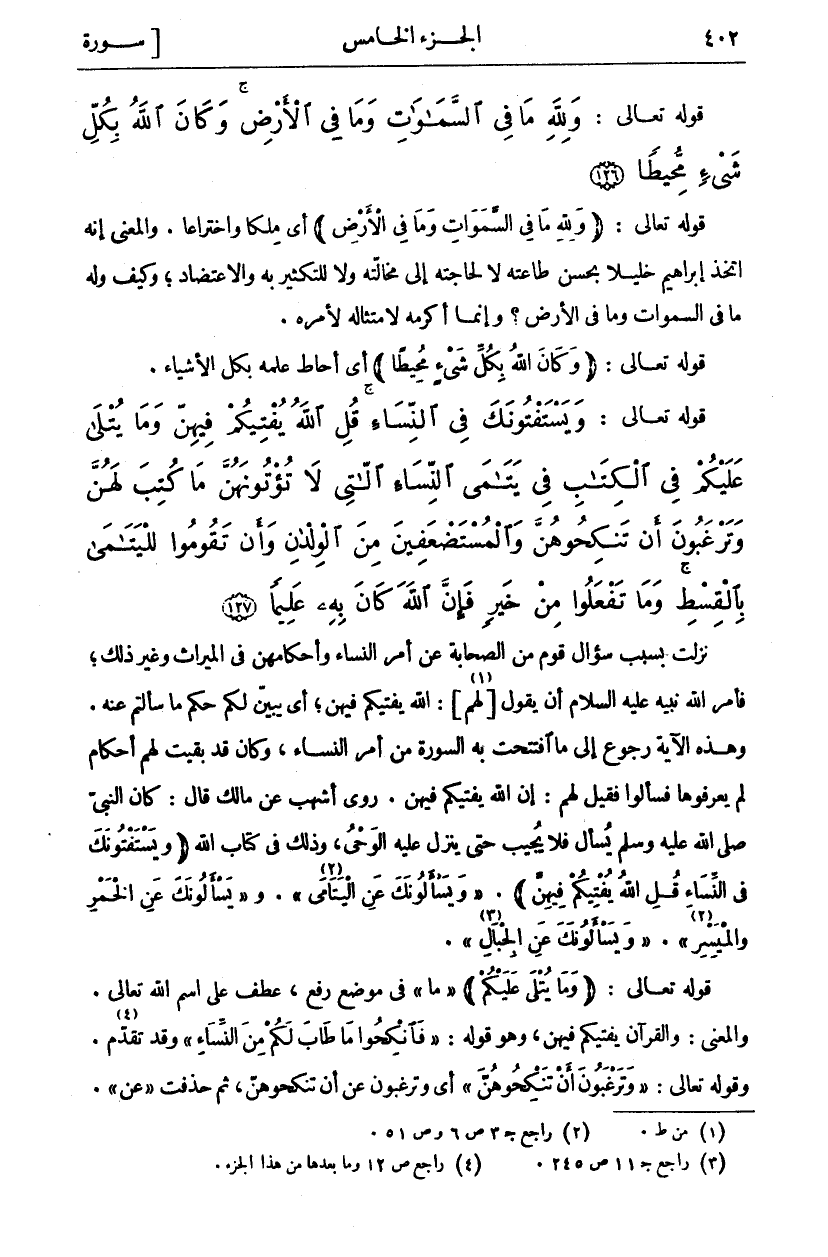 ٤٠٢ الجزء الخامس [ سورة
قوله تعالى : وَلِلَّهِ مَا فِى ٱلسَّمَـٰوَٰتِ وَمَا فِى ٱلْأَرْضِ ۚ وَكَانَ ٱللَّهُ بِكُلِّ
شَىْءٍ مُّحِيطًا ﴿١٢٦﴾
قوله تعالى : ﴿ وَلِلهِ مَا فِى السَّمَوَاتِ وَمَا فِى الْأَرْضِ ﴾ أى ملكا واختراعا . والمعنى إنه
اتخذ إبراهيم خليلا بحسن طاعته لا لحاجته إلى مخالّته ولا للتكثير به والاعتضاد ؛ وكيف وله
ما فى السموات وما فى الأرض ؟ وإنما أكرمه لامتثاله لأمره .
قوله تعالى : ﴿ وَكَانَ اللهُ بِكُلِّ شَىْءٍ مُحِيطًا ﴾ أى أحاط علمه بكل الأشياء .
قوله تعالى : وَيَسْتَفْتُونَكَ فِى ٱلنِّسَاءِ ۚ قُلِ ٱللَّهُ يُفْتِيكُمْ فِيهِنَّ وَمَا يُتْلَىٰ
عَلَيْكُمْ فِى ٱلْكِتَـٰبِ فِى يَتَـٰمَى ٱلنِّسَاءِ ٱلَّـٰتِى لَا تُؤْتُونَهُنَّ مَا كُتِبَ لَهُنَّ
وَتَرْغَبُونَ أَن تَنكِحُوهُنَّ وَٱلْمُسْتَضْعَفِينَ مِنَ ٱلْوِلْدَٰنِ وَأَن تَقُومُوا لِلْيَتَـٰمَىٰ
بِٱلْقِسْطِ ۚ وَمَا تَفْعَلُوا مِنْ خَيْرٍ فَإِنَّ ٱللَّهَ كَانَ بِهِۦ عَلِيمًا ﴿١٢٧﴾
نزلت بسبب سؤال قوم من الصحابة عن أمر النساء وأحكامهن فى الميراث وغير ذلك ؛
فأمر الله نبيه عليه السلام أن يقول [لهم](١) : الله يفتيكم فيهن ؛ أى يبيّن لكم حكم ما سألتم عنه .
وهذه الآية رجوع إلى ما ٱفتتحت به السورة من أمر النساء ، وكان قد بقيت لهم أحكام
لم يعرفوها فسألوا فقيل لهم : إن الله يفتيكم فيهن . روى أشهب عن مالك قال : كان النبىّ
صلى الله عليه وسلم يُسأل فلا يُجيب حتى ينزل عليه الوَحْىُ ، وذلك فى كتاب الله ﴿ ويَسْتَفْتُونَكَ
فى النِّسَاءِ قُلِ اللهُ يُفْتِيكُمْ فِيهِنَّ ﴾ . « وَيَسْأَلُونَكَ عَنِ الْيَتَامَى »(٢) . و « يَسْأَلُونَكَ عَنِ الْخَمْرِ
والْمَيْسِرِ »(٢) . « وَيَسْأَلُونَكَ عَنِ الْجِبَالِ »(٣) .
قوله تعالى : ﴿ وَمَا يُتْلَى عَلَيْكُمْ ﴾ « ما » فى موضع رفع ، عطف على اسم الله تعالى .
والمعنى : والقرآن يفتيكم فيهن ، وهو قوله : « فَٱنْكِحُوا مَا طَابَ لَكُمْ مِنَ النِّسَاءِ » وقد تقدّم(٤) .
وقوله تعالى : « وَتَرْغَبُونَ أَنْ تَنْكِحُوهُنَّ » أى وترغبون عن أن تنكحوهنّ ، ثم حذفت «عن» .
(١) من ط . (٢) راجع جـ ٣ ص ٦ و ص ٥١ .
(٣) راجع جـ ١١ ص ٢٤٥ . (٤) راجع ص ١٢ وما بعدها من هذا الجزء .